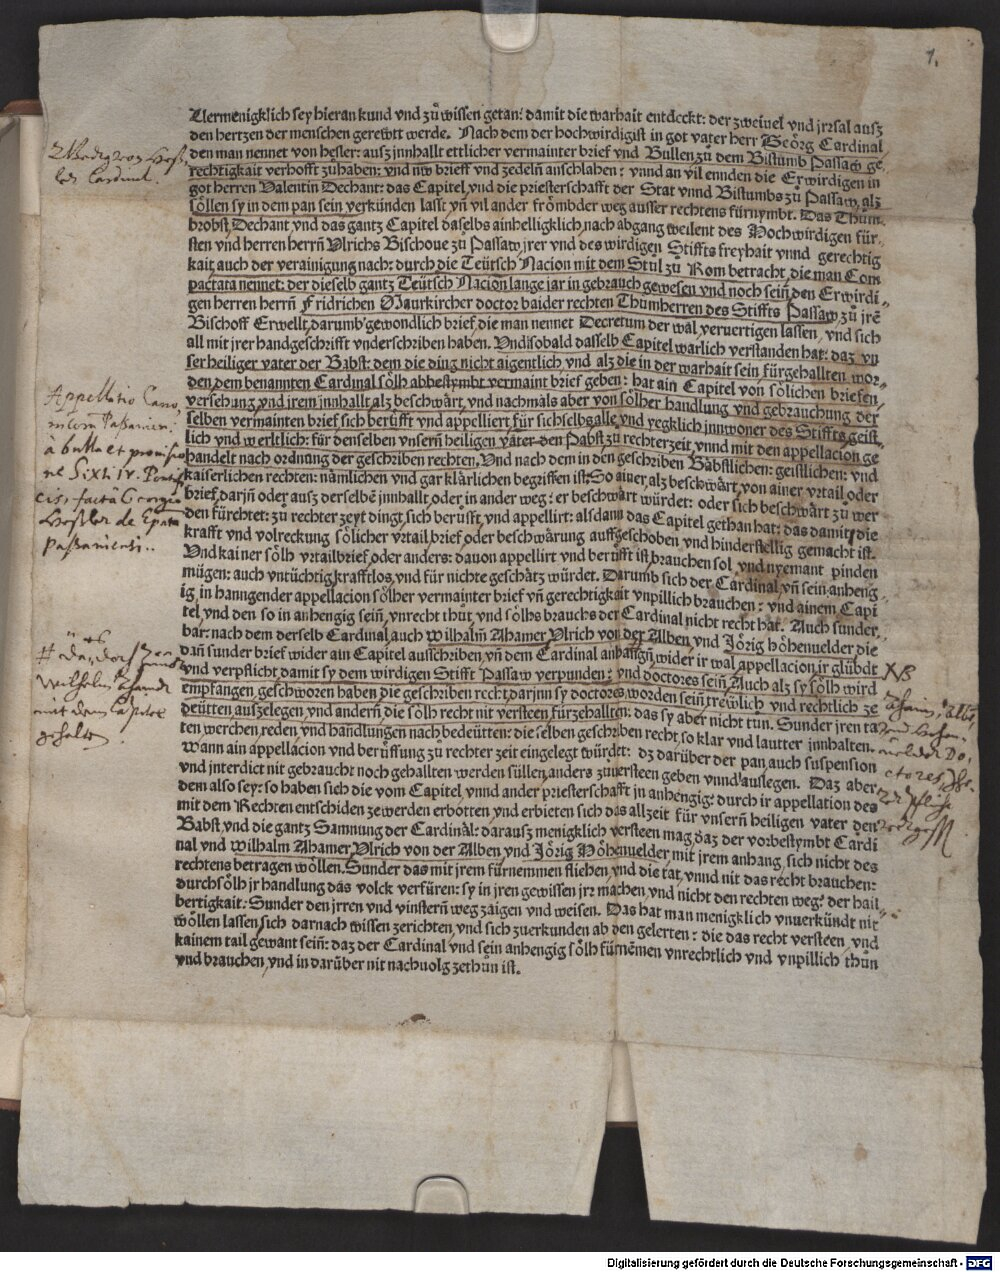 1.
Allermenigklich sey hieran kund vnd zů wissen getan: damit die warhait entdeckt: der zweiuel vnd jrrsal ausz
den hertzen der menschen gerewtt werde. Nach dem der hochwirdigist in got vater herr Georg Cardinal
den man nennet von hesler: ausz innhallt ettlicher vermainter brief vnd Bullen zů dem Bistumb Passaw ge-
rechtigkait verhofft zůhaben: vnd nw brieff vnd zedeln anschlahen: vnnd an vil ennden die Erwirdigen in
got herren Valentin Dechant: das Capitel, vnd die priesterschafft der Stat vnnd Bistumbs zů Passaw, alz
söllen sy in dem pan sein verkünden lasst vñ vil ander frömbder weg ausser rechtens fürnymbt. Das Thům
brobst, Dechant vnd das gantz Capitel daselbs ainhelligklich, nach abgang weilent des Hochwirdigen für-
sten vnd herren herrñ Vlrichs Bischoue zů Passaw, jrer vnd des wirdigen Stiffts freyhait vnnd gerechtig
kait, auch der verainigung nach: durch die Teütsch Nacion mit dem Stul zů Rom betracht, die man Com
pactata nennet: der dieselb gantz Teütsch Nacion lange jar in gebrauch gewesen vnd noch seiñ, den Erwirdi-
gen herren herrñ Fridrichen Maurkircher doctor baider rechten Thumherren des Stiffts Passaw zů jrē
Bischoff Erwellt, darumb gewondlich brief, die man nennet Decretum der wal, veruertigen lassen, vnd sich
all mit jrer handgeschrifft vnderschriben haben. Vnd sobald dasselb Capitel warlich verstanden hat: daz vn
ser heiliger vater der Babst: dem die ding nicht aigentlich vnd alz die in der warhait sein fürgehallten wor-
den, dem benannten Cardinal sölh abbestymbt vermaint brief geben: hat ain Capitel von sölichen briefen,
versehung vnd jrem innhallt, alz beschwärt, vnd nachmals aber von sölher handlung vnd gebrauchung der
selben vermainten brief sich berüfft vnd appelliert, für sich selbs alle vnd yegklich innwoner des Stiffts, geist-
lich vnd werltlich: für denselben vnserñ heiligen väter den Pabst zů rechter zeit, vnnd mit den appellacion ge
handelt nach ordnung der geschriben rechten. Vnd nach dem in den geschriben Bäbstlichen: geistlichen: vnd
kaiserlichen rechten: nämlichen vnd gar klärlichen begriffen ist: So ainer, alz beschwärt, von ainer vrtail oder
brief, darjñ oder ausz derselbē jnnhallt, oder in ander weg: er beschwärt würdet: oder sich beschwärt zů wer
den fürchtet: zů rechter zeyt dingt, sich berüfft, vnd appellirt: alsdann das Capitel gethan hat: das damit die
krafft vnd volreckung sölicher vrtail, brief, oder beschwärung auffgeschoben vnd hinderstellig gemacht ist.
Vnd kainer sölh vrtailbrief oder anders: dauon appellirt vnd berüfft ist, brauchen sol, vnd nyemant pinden
mügen: auch vntüchtig, krafftlos, vnd für nichte geschätz würdet. Darumb sich der Cardinal, vñ sein anheng-
ig, in hanngender appellacion sölher vermainter brief vñ gerechtigkait vnpillich brauchen: vnd ainem Capi
tel, vnd den so in anhengig seiñ, vnrecht thůt, vnd sölhs brauchs der Cardinal nicht recht hat. Auch sunder-
bar: nach dem derselb Cardinal, auch Wilhalm̃ Ahamer, Vlrich von der Alben, vnd Jörig höhenuelder die
dañ sunder brief wider ain Capitel ausschriben, vñ dem Cardinal anhanngñ, wider ir wal, appellacion, ir glübdt
vnd verpflicht, damit sy dem wirdigen Stifft Passaw verpunden: vnd doctores seiñ, Auch alz sy sölh wird
empfangen, geschworen haben die geschriben recht, darjnn sy doctores, worden seiñ, trewlich vnd rechtlich ze
deütten, auszelegen, vnd anderñ die sölh recht nit versteen fürzehallten: das sy aber nicht tun. Sunder jren ta
ten, werchen, reden, vnd handlungen nach, bedeütten: die selben geschriben recht, so klar vnd lautter innhalten.
Wann ain appellacion vnd berüffung zů rechter zeit eingelegt würdt: dz darüber der pan, auch suspension
vnd interdict nit gebraucht noch gehallten werden süllen, anders zuuersteen geben vnnd auslegen. Daz aber
dem also sey: so haben sich die vom Capitel, vnnd ander priesterschafft jn anhengig: durch ir appellation des
mit dem Rechten entschiden zewerden erbotten, vnd erbieten sich das allzeit für vnserñ heiligen vater den
Babst, vnd die gantz Samnung der Cardinäl: darausz menigklich versteen mag, daz der vorbestymbt Cardi
nal vnd Wilhalm Ahamer, Vlrich von der Alben, vnd Jörig Höhenuelder mit jrem anhang, sich nicht des
rechtens betragen wöllen. Sunder das mit jrem fürnemmen fliehen, vnd die tat, vnnd nit das recht brauchen:
durch sölh jr handlung das volck verfüren: sy in jren gewissen jrr machen, vnd nicht den rechten weg: der hail-
bertigkait: Sunder den jrren vnd vinsterñ weg zaigen vnd weisen. Das hat man menigklich vnuerkündt nit
wöllen lassen, sich darnach wissen zerichten, vnd sich zuerkunden ab den gelerten: die das recht versteen, vnd
kainem tail gewant seiñ: daz der Cardinal vnd sein anhengig sölh fürnēmen vnrechtlich vnd vnpillich thůn
vnd brauchen, vnd in darüber nit nachuolg zethůn ist.
Cardinal.
Appellatio Cano-
nicorum Paßaniens.
à bulla et provisio-
ne Sixti IV. Pontifi
cis, facta Georgio
Hesßler de Epatu
Paßaniensi.
Wilhelm
mit dem Capitel
gehalten.
NB
Doctores
Digitalisierung gefördert durch die Deutsche Forschungsgemeinschaft - DFG